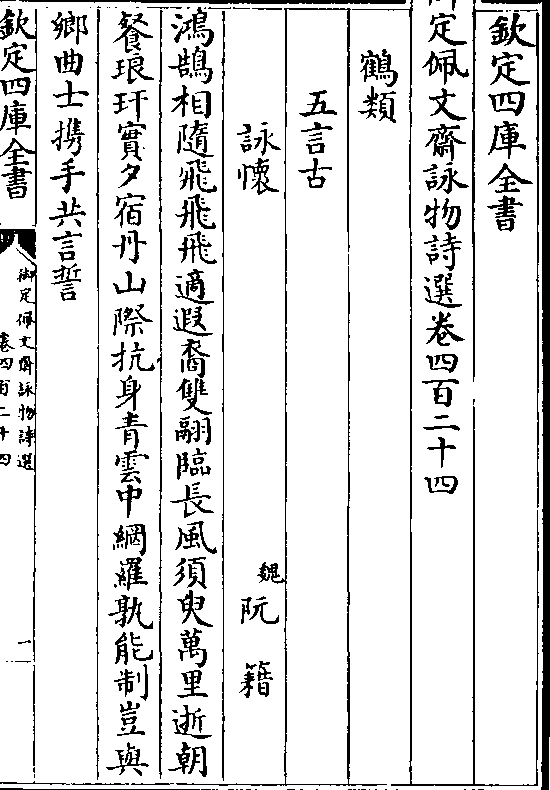 欽定四庫全書
御定佩文齋詠物詩選卷四百二十四
鶴類
五言古
詠懷 魏 阮籍
鴻鵠相隨飛飛飛適遐裔雙翮臨長風須臾萬里逝朝
餐琅玕實夕宿丹山際抗身青雲中網羅孰能制豈與
鄉曲士携手共言誓
欽定四庫全書
御定佩文齋詠物詩選
卷四百二十四
一